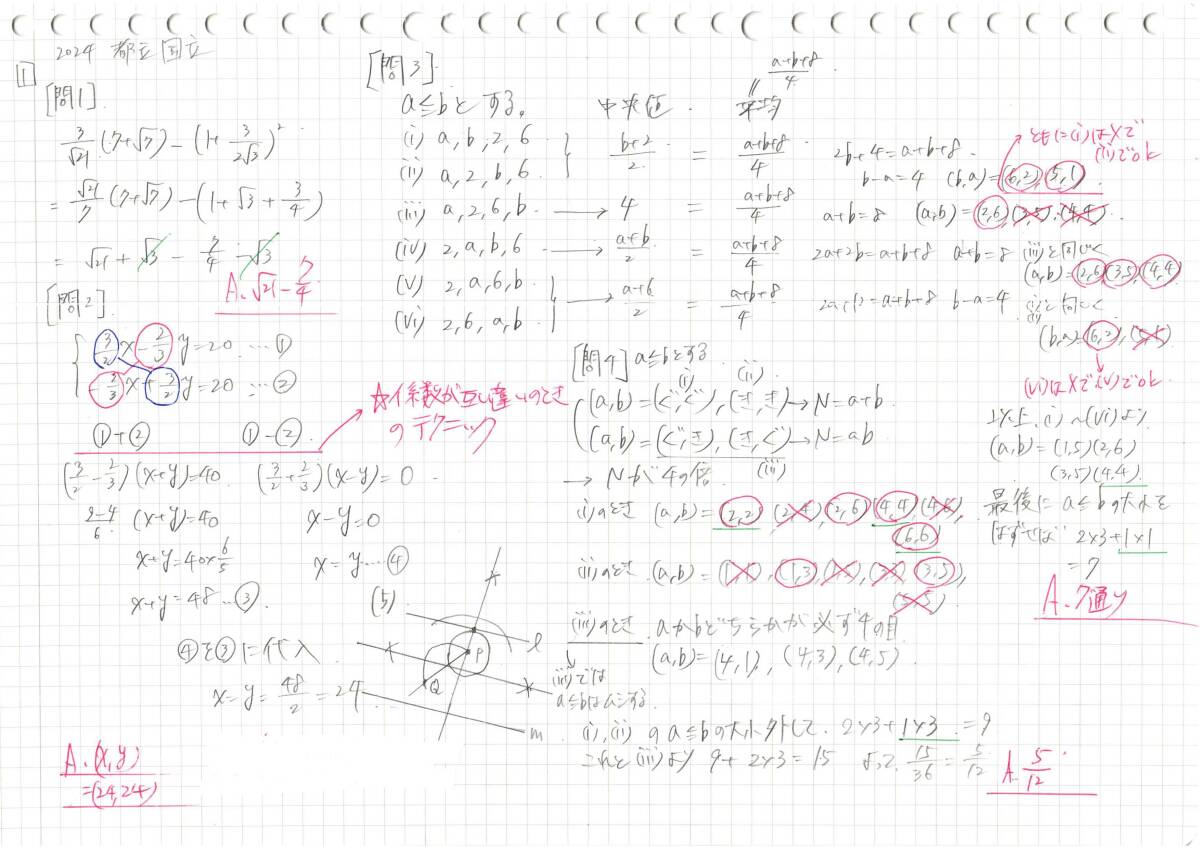 2024 都立国立
1
[問1]
3/√21 (7+√7) - (1 + 3/2√3)²
= √21/7 (7+√7) - (1+√3+3/4)
= √21 + √3 - 7/4 - √3
A. √21 - 7/4
[問2]
{ 3/2 x - 2/3 y = 20 … ①
- 2/3 x + 3/2 y = 20 … ②
①+② ①-②
☆係数が互い違いのとき
のテクニック
(3/2 - 2/3)(x+y) = 40 (3/2 + 2/3)(x-y) = 0
9-4/6 (x+y) = 40 x-y=0
x+y = 40×6/5 x=y … ④
x+y = 48 … ③
④を③に代入
x=y= 48/2 = 24
A. (x, y)
=(24,24)
[問3]
a≦bとする。 中央値 平均
= a+b+8/4
(i) a, b, 2, 6
(ii) a, 2, b, 6
} b+2/2 = a+b+8/4 2b+4=a+b+8
b-a=4 (b,a)=(6,2),(5,1)
ともに(i)は×で
(ii)でok
(iii) a, 2, 6, b → 4 = a+b+8/4 a+b=8 (a,b)=(2,6)(3,5),(4,4)
(iv) 2, a, b, 6 → a+b/2 = a+b+8/4 2a+2b=a+b+8 a+b=8 (iii)と同じく
(a,b)=(2,6)(3,5),(4,4)
(v) 2, a, 6, b
(vi) 2, 6, a, b
} → a+6/2 = a+b+8/4 2a+12=a+b+8 b-a=4 と同じく
(b,a)=(6,2),(5,1)
(vi)は×で(v)でok
以上、(i)~(vi)より
(a,b)=(1,5)(2,6)
(3,5)(4,4)
最後にa≦bの大小を
はずせば 2×3+1×1
=7
A. 7通り
[問4] a≦bとする
(i) (ii)
{ (a,b)=(ぐ,ぐ),(き,き)→N=a+b
(a,b)=(ぐ,き),(き,ぐ)→N=ab
(iii)
→ Nが4の倍
i)のとき (a,b)=(2,2)(2,4)(2,6)(4,4)(4,6),
(6,6)
(ii)のとき (a,b)=(1,1),(1,3)(1,5)(3,3)(3,5),
(5,5)
(iii)のとき aかbどちらかが必ず4の目
(a,b)=(4,1),(4,3),(4,5)
(iii)では
a≦bはムシする
(i),(ii)のa≦bの大小外して 2×3+1×3=9
これと(iii)より 9+2×3=15 よって 15/36 = 5/12
A. 5/12
(5)
l
P
Q
m